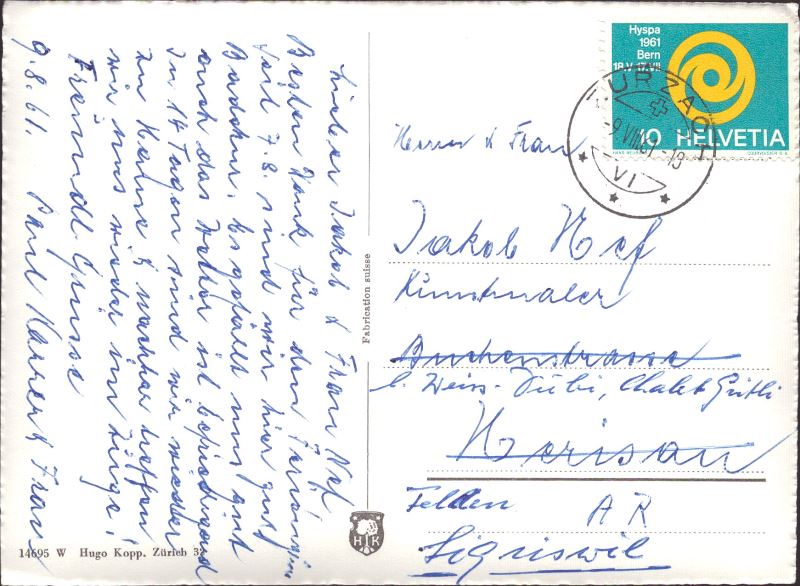 Lieber Jakob & Frau Nef
Besten Dank für den Feriengruss
Seit 7.8. sind wir hier zur
Badekur. Es gefällt uns gut
auch das Wetter ist befriedigend
In 14 Tagen sind wir wieder
zu Hause & nachher treffen
wir uns wieder im Züge!
Freundl Grüsse
9.8.61. Paul Karrer & Frau
14695 W Hugo Kopp. Zürich 32
Fabrication suisse
H K
Hyspa
1961
Bern
18.V-17.VII
10 HELVETIA
ZURZACH
-9.VIII.61.-18
VI
Herrn & Frau
Jakob Nef
Kunstmaler
Buchenstrasse
b. Weiss-Tübi, Chalet Grütli
Herisau
Felden AR
Sigriswil